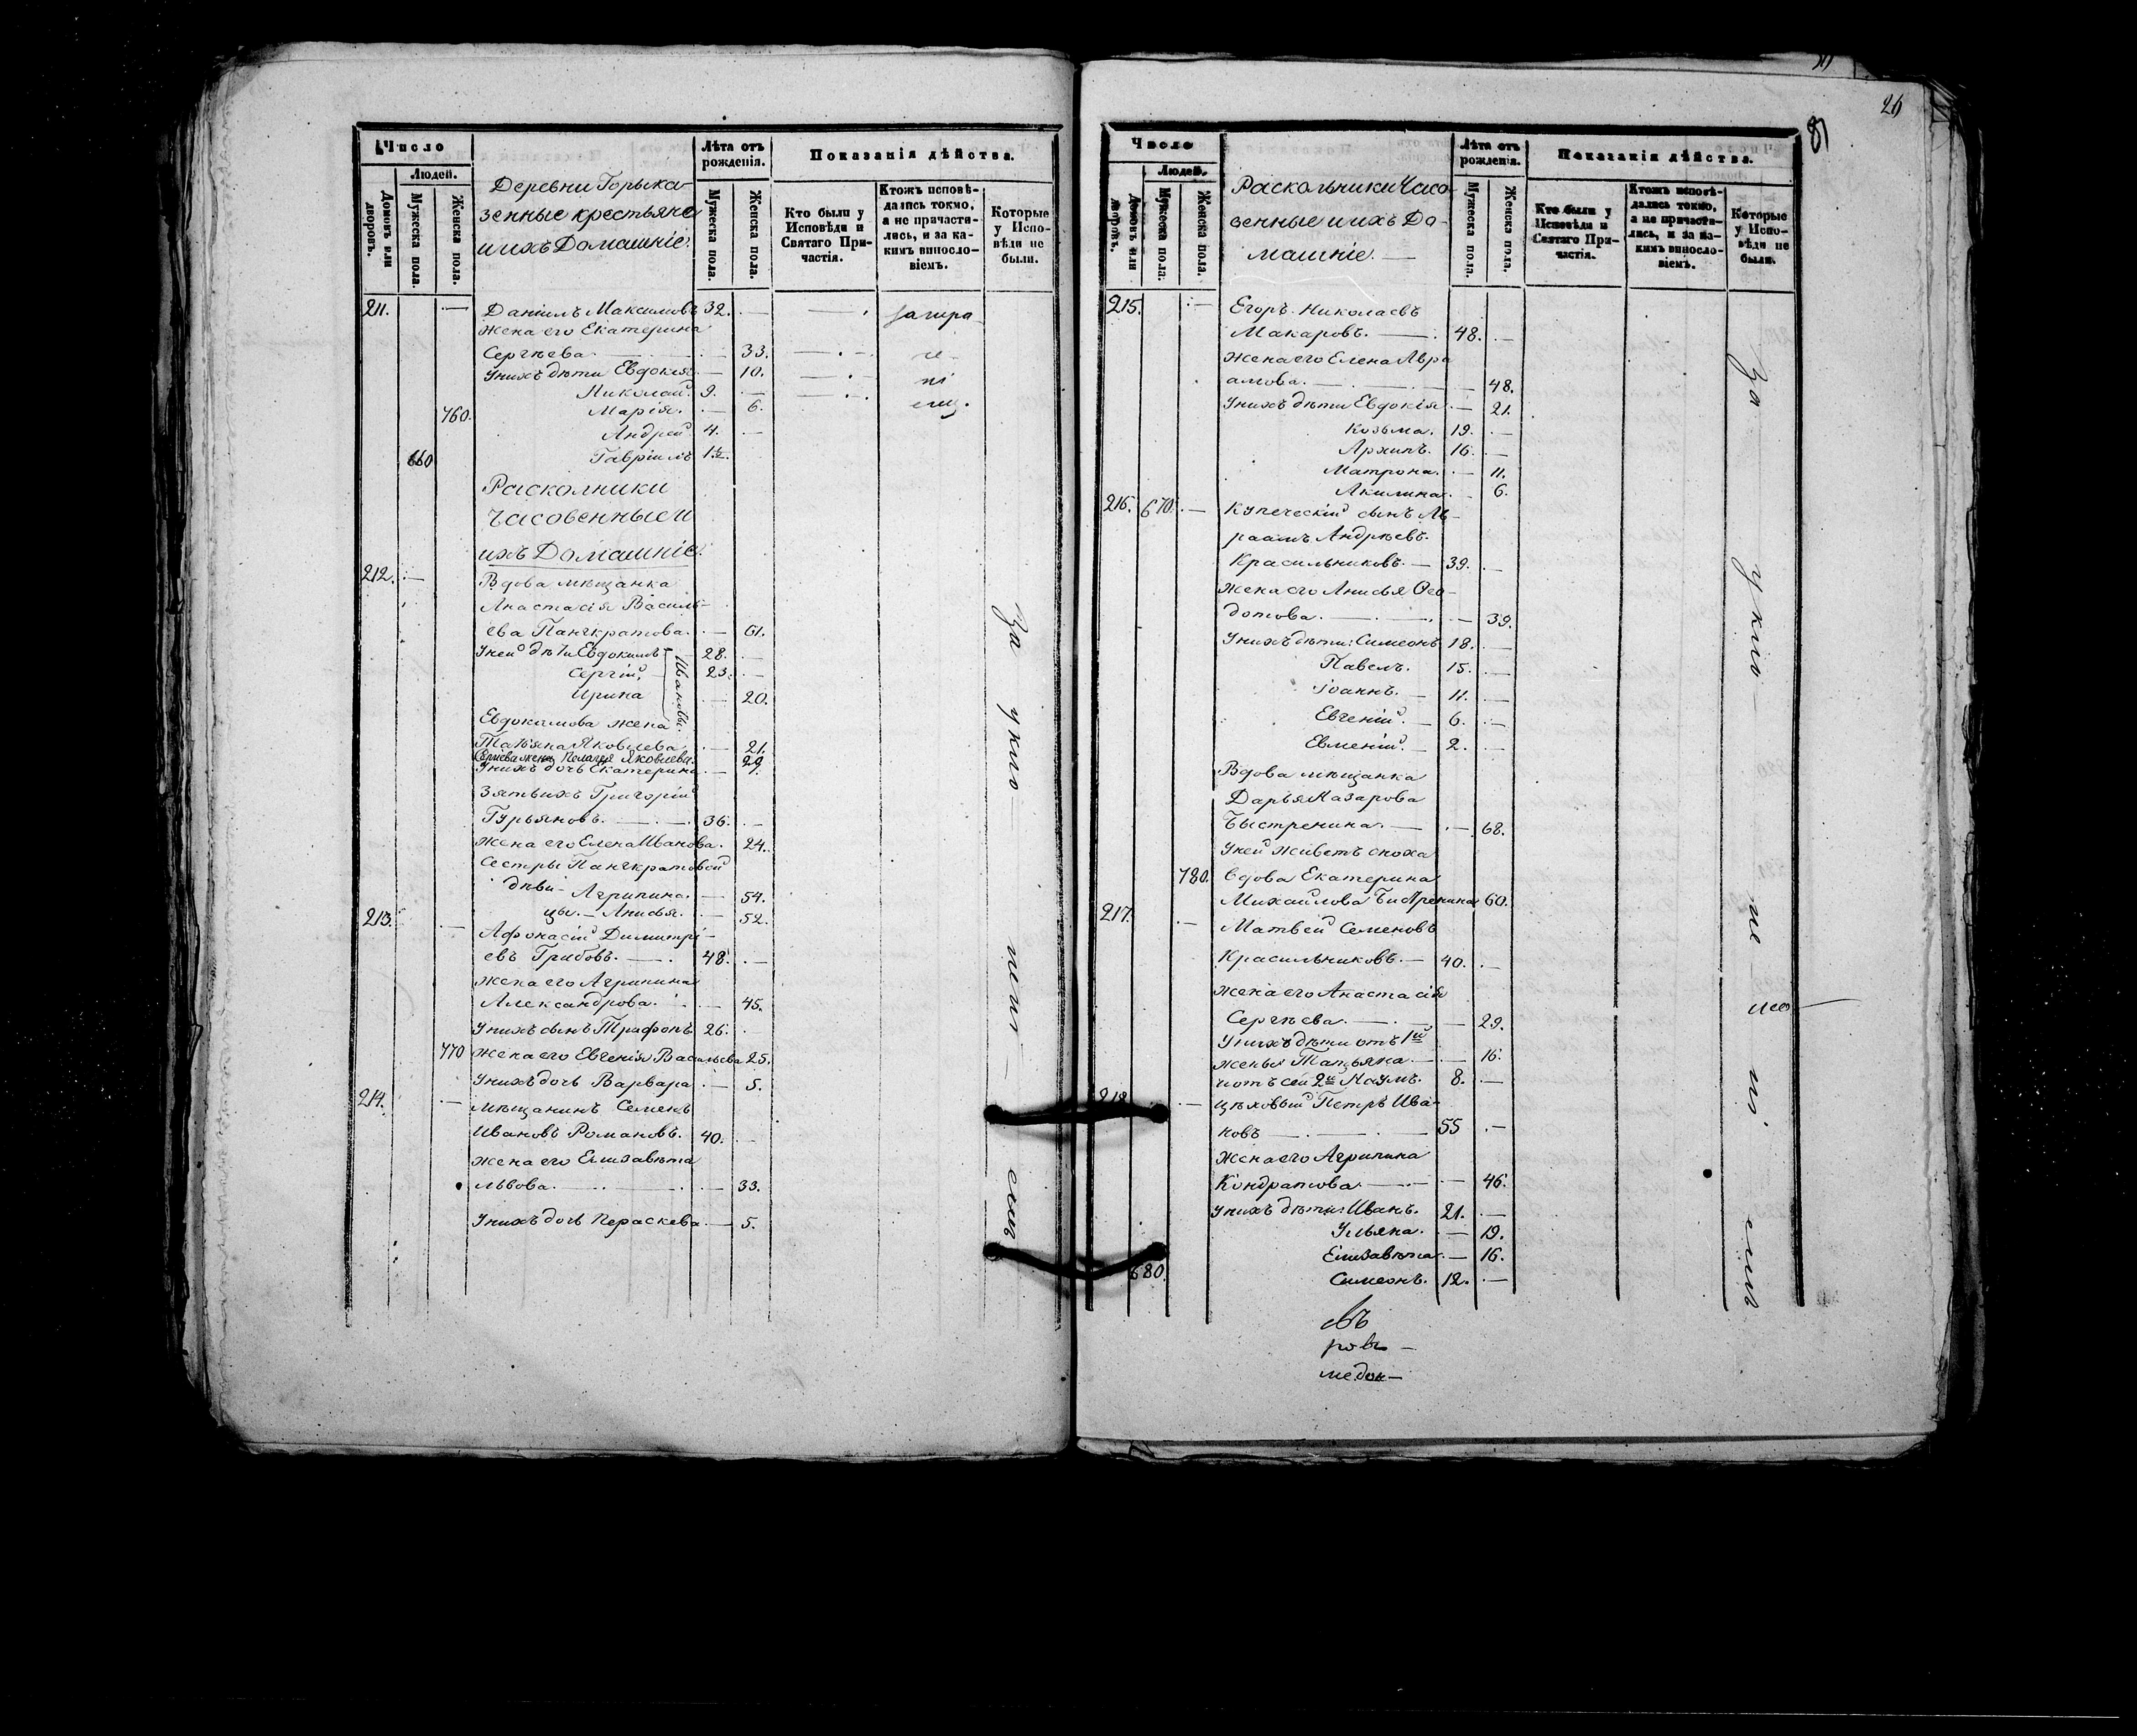 Число
Людей.
Домовъ или дворовъ.
Мужеска пола.
Женска пола.
Деревни Горы ка-
зенные крестьяне
и ихъ Домашніе.
Лѣта отъ рожденія.
Мужеска пола.
Женска пола.
Показанія дѣйства.
Кто были у Исповѣди и Святаго При-частія.
Ктожъ исповѣ-дались токмо, а не причасти-лись, и за ка-кимъ винослo-віемъ.
Которые у Испо-вѣди не были.
211. — Даніилъ Максимовъ 32. —
жена его Екатерина
Сергѣева. — 33.
У нихъ дѣти Евдокія — 10.
Николай. 9. —
760. Марія. — 6.
Андрей 4. —
660 Гавріилъ 1½.
Расколники
часовенные и
ихъ Домашніе.
212. — Вдова мѣщанка
Анастасія Василь-
ева Панкратова. — 61.
У ней дѣти Евдокимъ 28. —
Сергій, 23. —
Ирина — 20.
Ивановы.
Евдокимова жена
Татьяна Яковлева — 21.
Сергіева жена Пелагея Яковлева. 29.
У нихъ дочь Екатерина —
Зять ихъ Григорій
Гурьяновъ. — 36. —
жена его Елена Иванова. 24.
Сестры Панкратовой
дѣви- Агрипина. — 54.
цы. — Анисья. — 52.
213. — Афонасій Димитрі-
евъ Грибовъ. — 48. —
жена его Агрипина
Александрова. — 45.
У нихъ сынъ Трифонъ 26. —
770 жена его Евгенія Васильева 25.
У нихъ дочь Варвара — 5.
214. — мѣщанинъ Семенъ
Ивановъ Романовъ. 40. —
жена его Елизавѣта
Львова. — 33.
У нихъ дочь Параскева — 5.
За
26
81
Число
Людей.
Домовъ или дворовъ.
Мужеска пола.
Женска пола.
Раскольники Часо-
венные и ихъ До-
машніе. —
Лѣта отъ рожденія.
Мужеска пола.
Женска пола.
Показанія дѣйства.
Кто были у Исповѣди и Святаго При-частія.
Ктожъ исповѣ-дались токмо, а не причасти-лись, и за ка-кимъ винослo-віемъ.
Которые у Испо-вѣди не были.
215. — Егоръ Николаевъ
Макаровъ. — 48. —
жена его Елена Авра
амова. — 48.
У нихъ дѣти Евдокія — 21.
Козьма. 19. —
Архипъ. 16. —
Матрона. — 11.
Акилина. — 6.
216. 670. — Купеческій сынъ Ав-
раамъ Андрѣевъ.
Красильниковъ. — 39. —
жена его Анисья Ѳео-
дотова. — 39.
У нихъ дѣти: Симеонъ 18. —
Павелъ. 15. —
Іоаннъ. — 11. —
Евгеній. — 6. —
Евменій. — 2. —
Вдова мѣщанка
Дарья Назарова
Быстренина. — 68.
У ней живетъ сноха
780. вдова Екатерина
Михайлова 60.
217. — Матвей Семеновъ
Красильниковъ. — 40. —
жена его Анастасія
Сергѣева. — 29.
У нихъ дѣти отъ 1й
жены Татьяна — 16.
и отъ сей 2й Наумъ. 8. —
218. — цѣховый Петръ Ива-
новъ — 55 —
жена его Агрипина
Кондратова. — 46.
У нихъ дѣти: Иванъ. 21. —
Ульяна. — 19.
Елизавѣта. — 16.
680. Симеонъ. 12. —
За